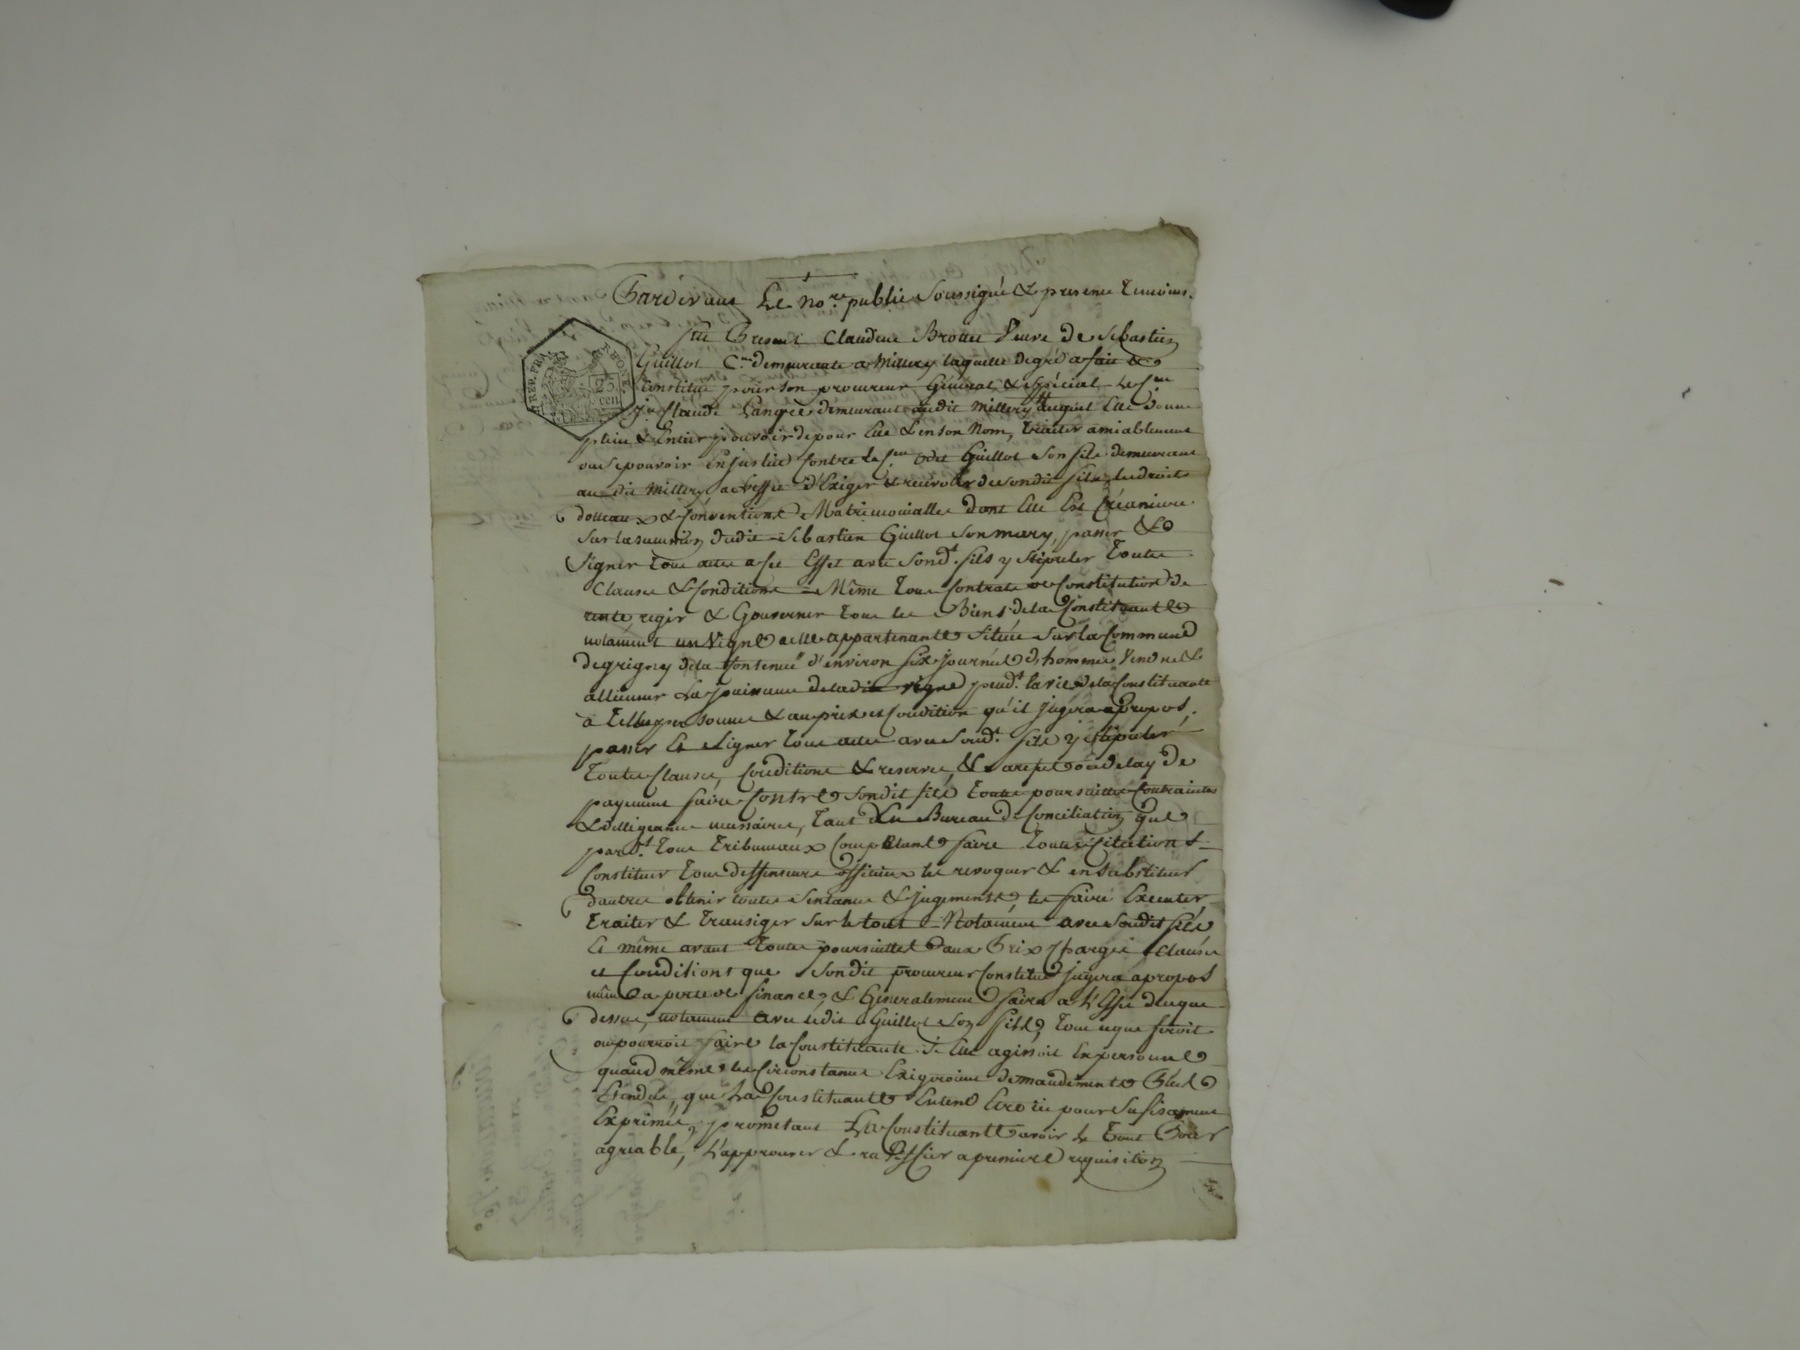 Pardevant Le no.re public Soussigné & presence temoins.
fut Present Claudine Brottet Veuve de Sebastien
Guillot C.ne demeurante a Millery laquelle degré a fait &
Constitué pour son procureur Général & spécial le C.en
J.n Claude demeurant audit Millery auquel Elle donne
plein & Entier pouvoir depour Elle & enson Nom, traiter amiablement
ou sepourvoir enjustice Contre le C.en Guillot Son fils demeurant
audit Millery a l'effet d'Exiger & recevoir desondit fils les droits
dotteaux & Conventions Matrimonialles dont Elle Est Créanciere
Sur la dudit Sebastien Guillot Son mary, passer &
Signer tous actes a Cet Effet avec Sond.t fils y Stipuler toutes
Clauses & Conditions Même tous Contrats de Constitution de
rente, regir & Gouverner tous les Biens de la Constituante
notament un Vigne a elle appartenante Située Sur la Commune
degrigny dela Contenue d'environ Six journée d'hommes Vendre &
allienner La jouissance deladite vigne pend.t la vie dela Constituante
à telle personne & au prix et Condition qu'il jugera apropos,
passer Et Signer tous actes avec Sond.t fils y stipuler
toutes Clauses, Conditions & reserves, & a refus ou delay de
payement faire Contre Sondit fils toutes poursuittes Contraintes
& dilligeances necessaires, tant En Bureau de Conciliation que
pard.t tous tribunaux Compétants faire toutes Citations
Constituer tous deffenseurs officieux les revoquer & en Substituer
dautres obtenir toutes Sentances & jugements, les faire Executer,
traiter & transiger Sur le tout Notament avec Sondit fils
Et même avant toutes poursuittes aux Prix Charges Clauses
et Conditions que Sondit procureur Constitué jugera apropos
même a perte de finance, & Generalement faire a l'Effet decque
dessus, notament avec ledit Guillot Son fils, tout ceque feroit
oupourroit faire la Constituante Si Elle agissoit En personne
quand même les Circonstances Exigeroient de mandements Plus
Etendus, que La Constituante Entend Etre ici pour Sufisament
Exprimés, prometant La Constituante avoir le tout Pour
agréable, l'approuver & ratiffier a premiere requisition